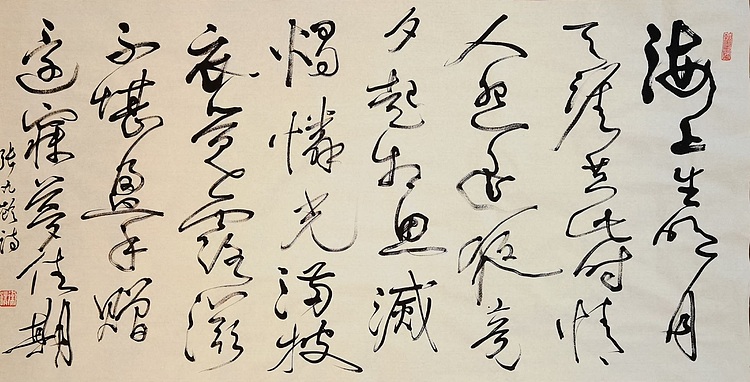 海上生明月
天涯共此时情
人怨遥夜竟
夕起相思滅
燭憐光满披
衣覺露滋
不堪盈手贈
還寐夢佳期
張九齡詩